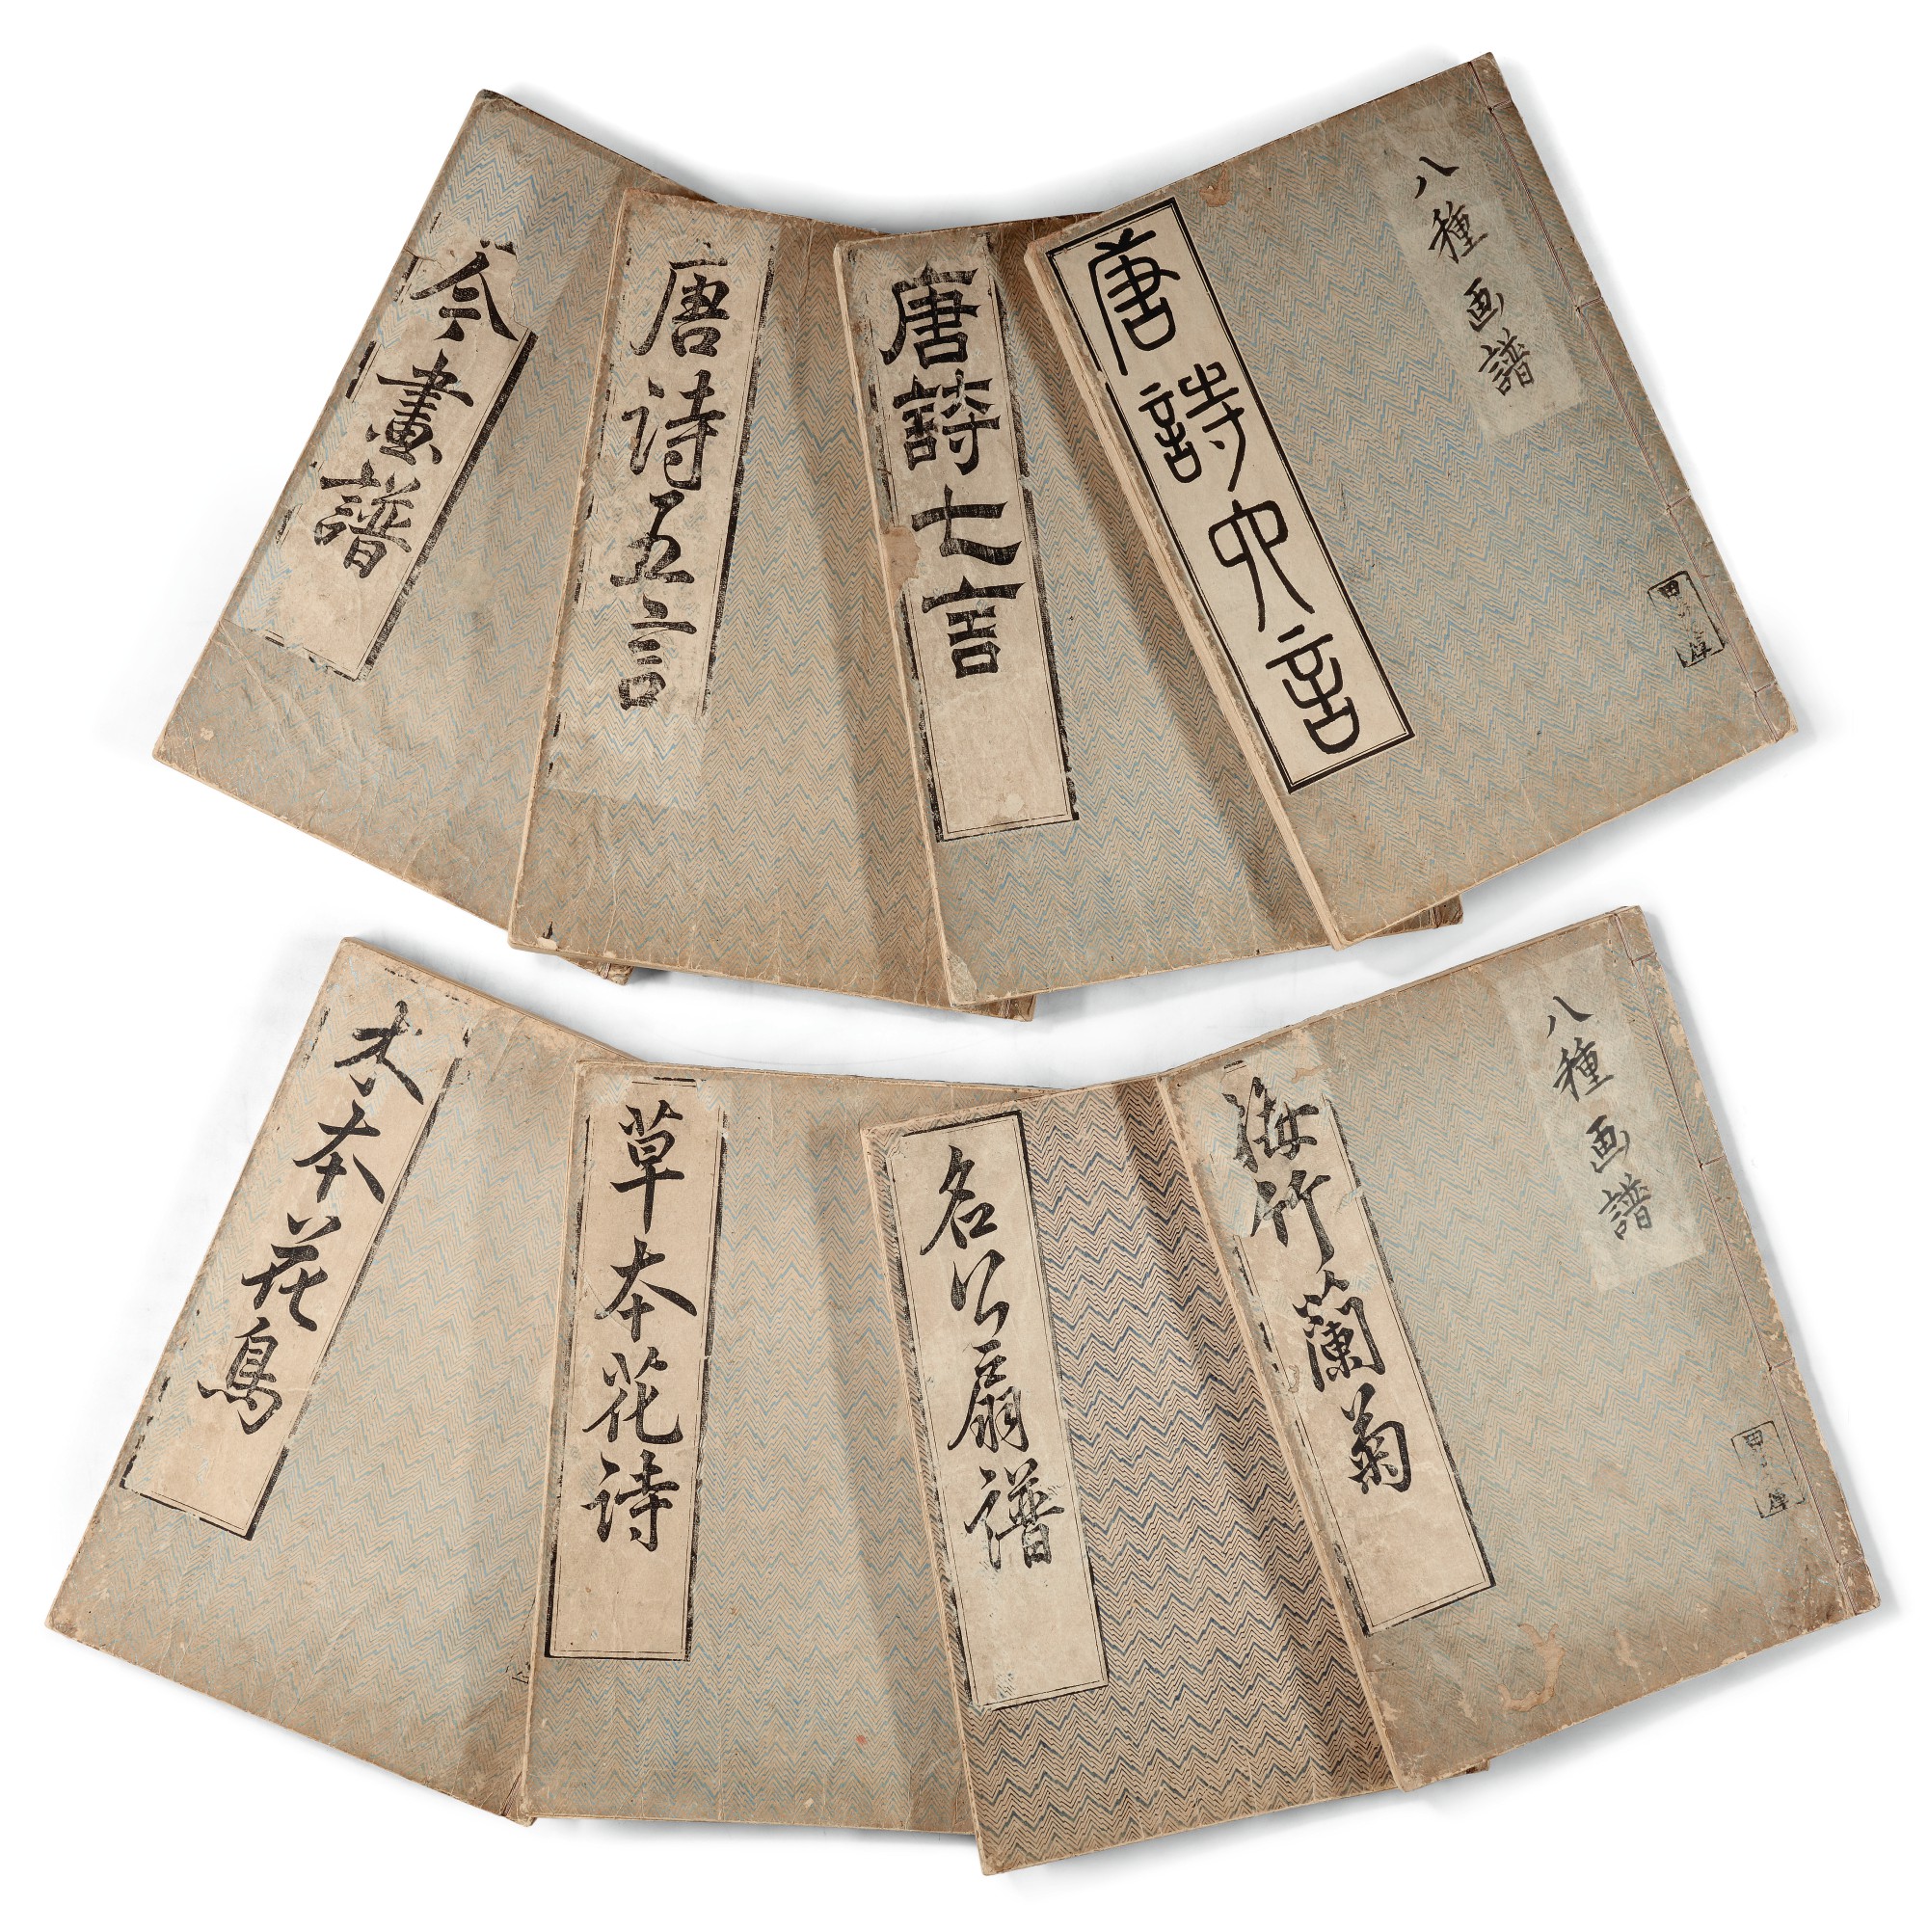 八種画譜
唐詩六言
唐詩七言
唐诗五言
今畫譜
八種画譜
梅竹蘭菊
名公扇谱
草本花诗
木本花鳥